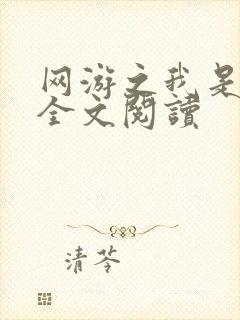 网游之我是
全文閱讀
清苓